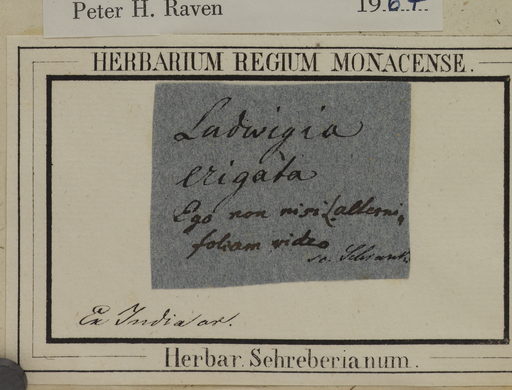 Peter H. Raven 1967
HERBARIUM REGIUM MONACENSE.
Ludwigia
erigata
Ego non nisi L. alterni,
foliam video
Schrank
Ex India or.
Herbar. Schreberianum.